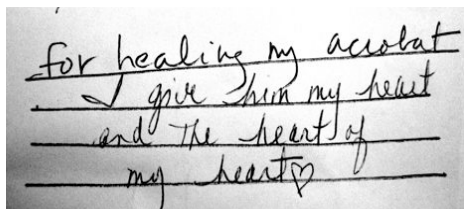 for healing my acrobat
I give him my heart
and the heart of
my heart♡